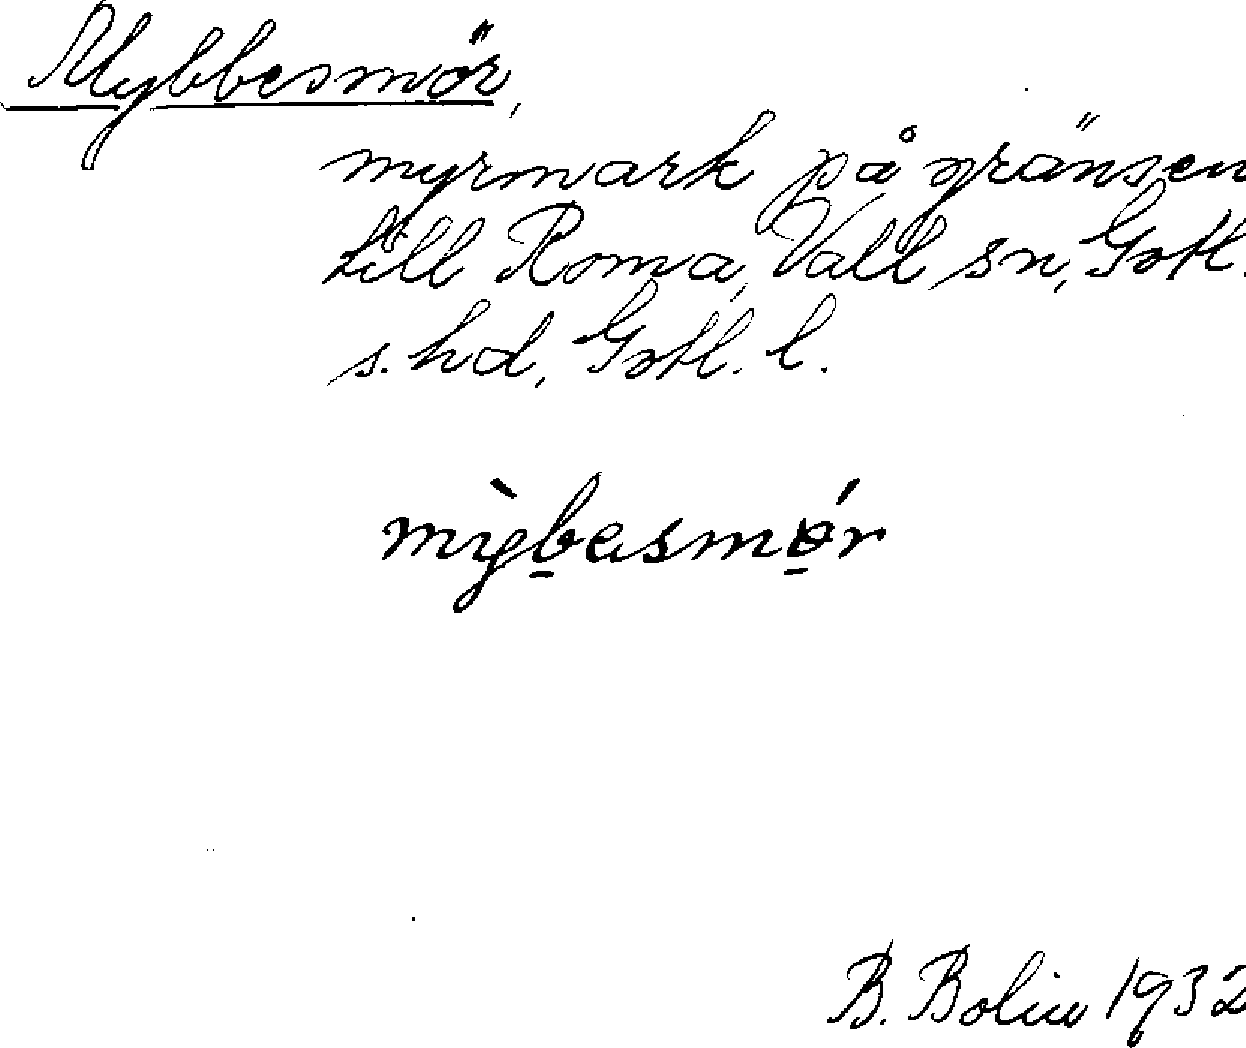 Mybbesmör,
myrmark på gränsen
till Roma, Vall sn, Gotl.
s. hd, Gotl. l.
mỳb̲asmǿ̲r
B. Bolin 1932